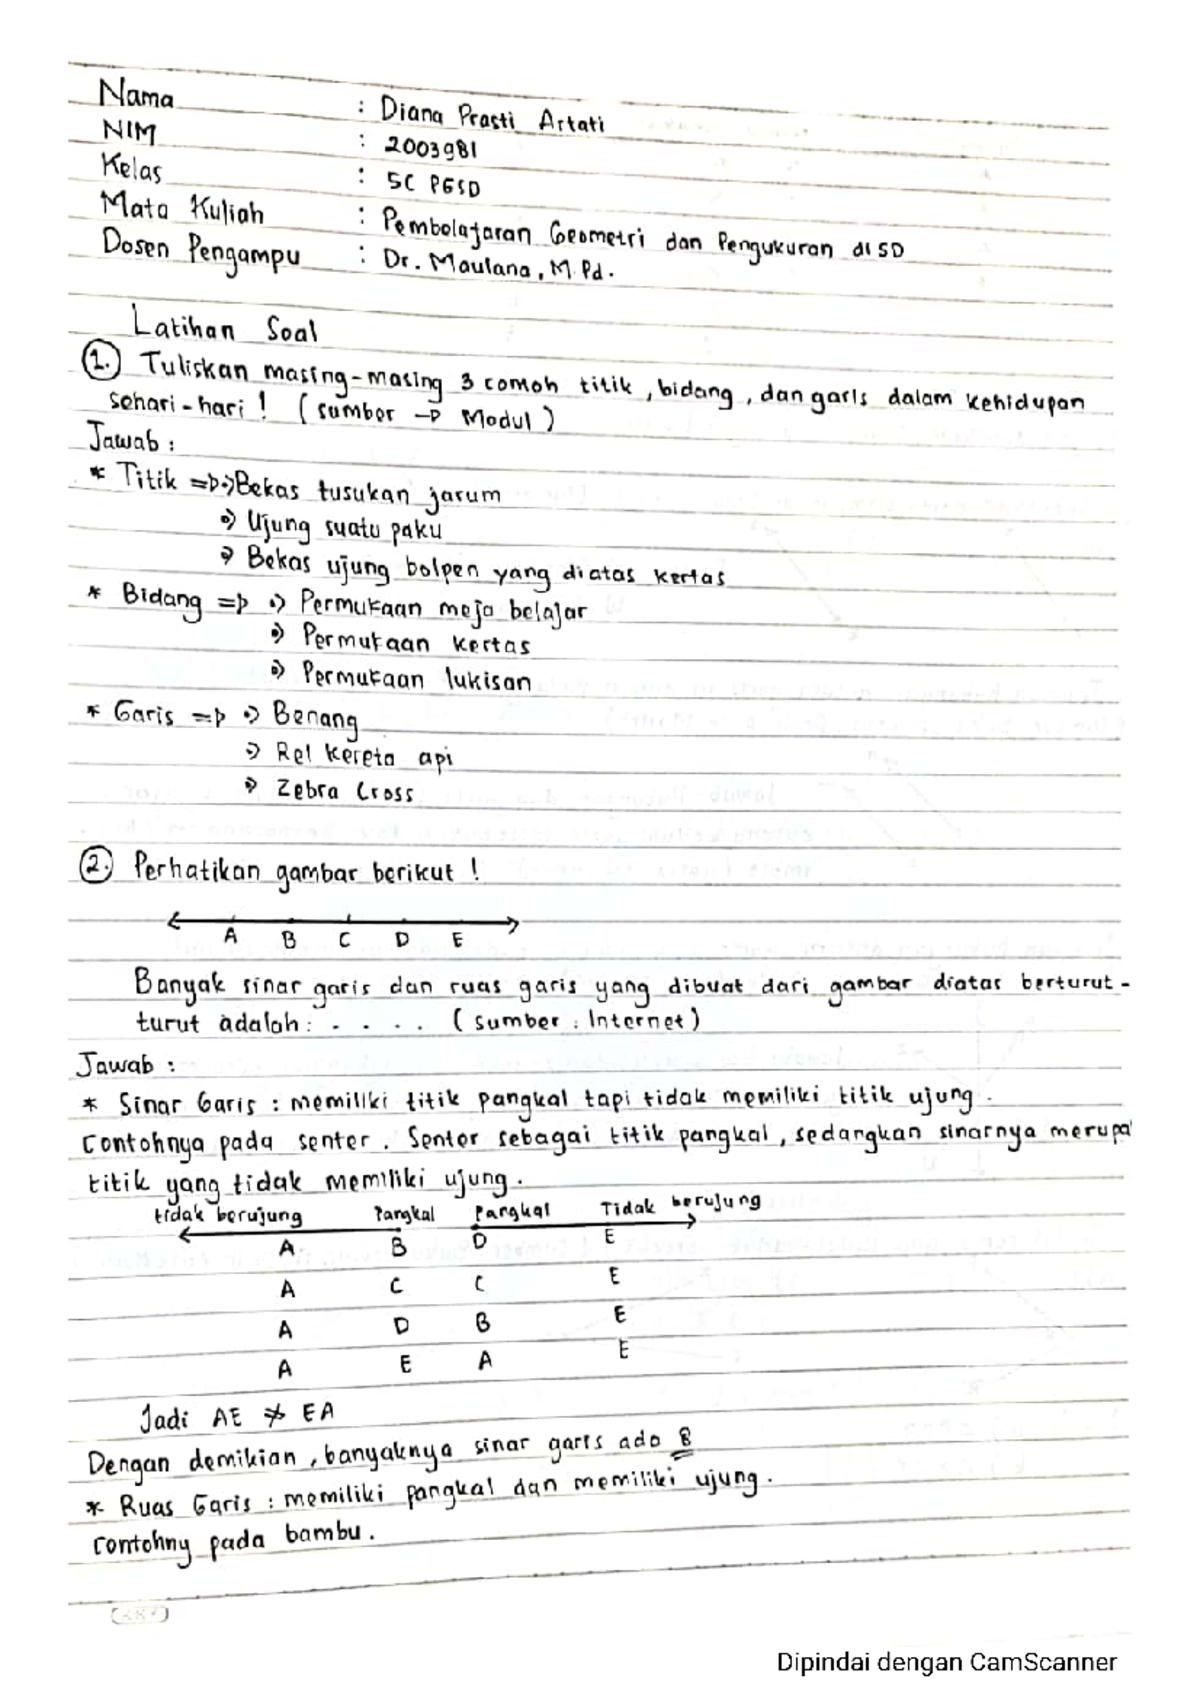 Nama : Diana Prasti Artati
NIM : 2003981
Kelas : 5C PGSD
Mata Kuliah : Pembelajaran Geometri dan Pengukuran di SD
Dosen Pengampu : Dr. Maulana, M.Pd.
Latihan Soal
1. Tuliskan masing-masing 3 comoh titik, bidang, dan garis dalam kehidupan
sehari-hari! (sumber → Modul)
Jawab :
* Titik => •) Bekas tusukan jarum
•) Ujung suatu paku
•) Bekas ujung bolpen yang diatas kertas
* Bidang => •) Permukaan meja belajar
•) Permukaan kertas
•) Permukaan lukisan
* Garis => •) Benang
•) Rel kereta api
•) Zebra Cross
2. Perhatikan gambar berikut !
A B C D E
Banyak sinar garis dan ruas garis yang dibuat dari gambar diatas berturut-
turut adalah : . . . . (sumber : Internet)
Jawab :
* Sinar Garis : memiliki titik pangkal tapi tidak memiliki titik ujung.
Contohnya pada senter. Senter sebagai titik pangkal, sedangkan sinarnya merupa
titik yang tidak memiliki ujung.
tidak berujung Pangkal Pangkal Tidak berujung
A B D E
A C C E
A D B E
A E A E
Jadi AE ≠ EA
Dengan demikian, banyaknya sinar garis ada 8
* Ruas Garis : memiliki pangkal dan memiliki ujung.
Contohny pada bambu.
Dipindai dengan CamScanner